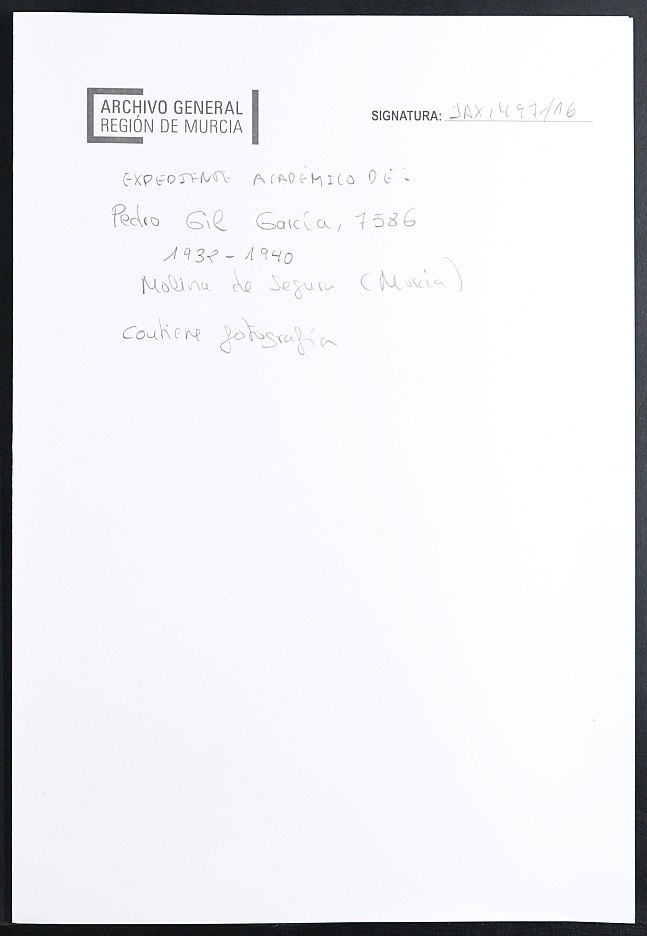 ARCHIVO GENERAL
REGIÓN DE MURCIA
SIGNATURA: JAX,497/16
EXPEDIENTE ACADÉMICO DE:
Pedro Gil García, 7586
1932-1940
Molina de Segura (Murcia)
Contiene fotografía